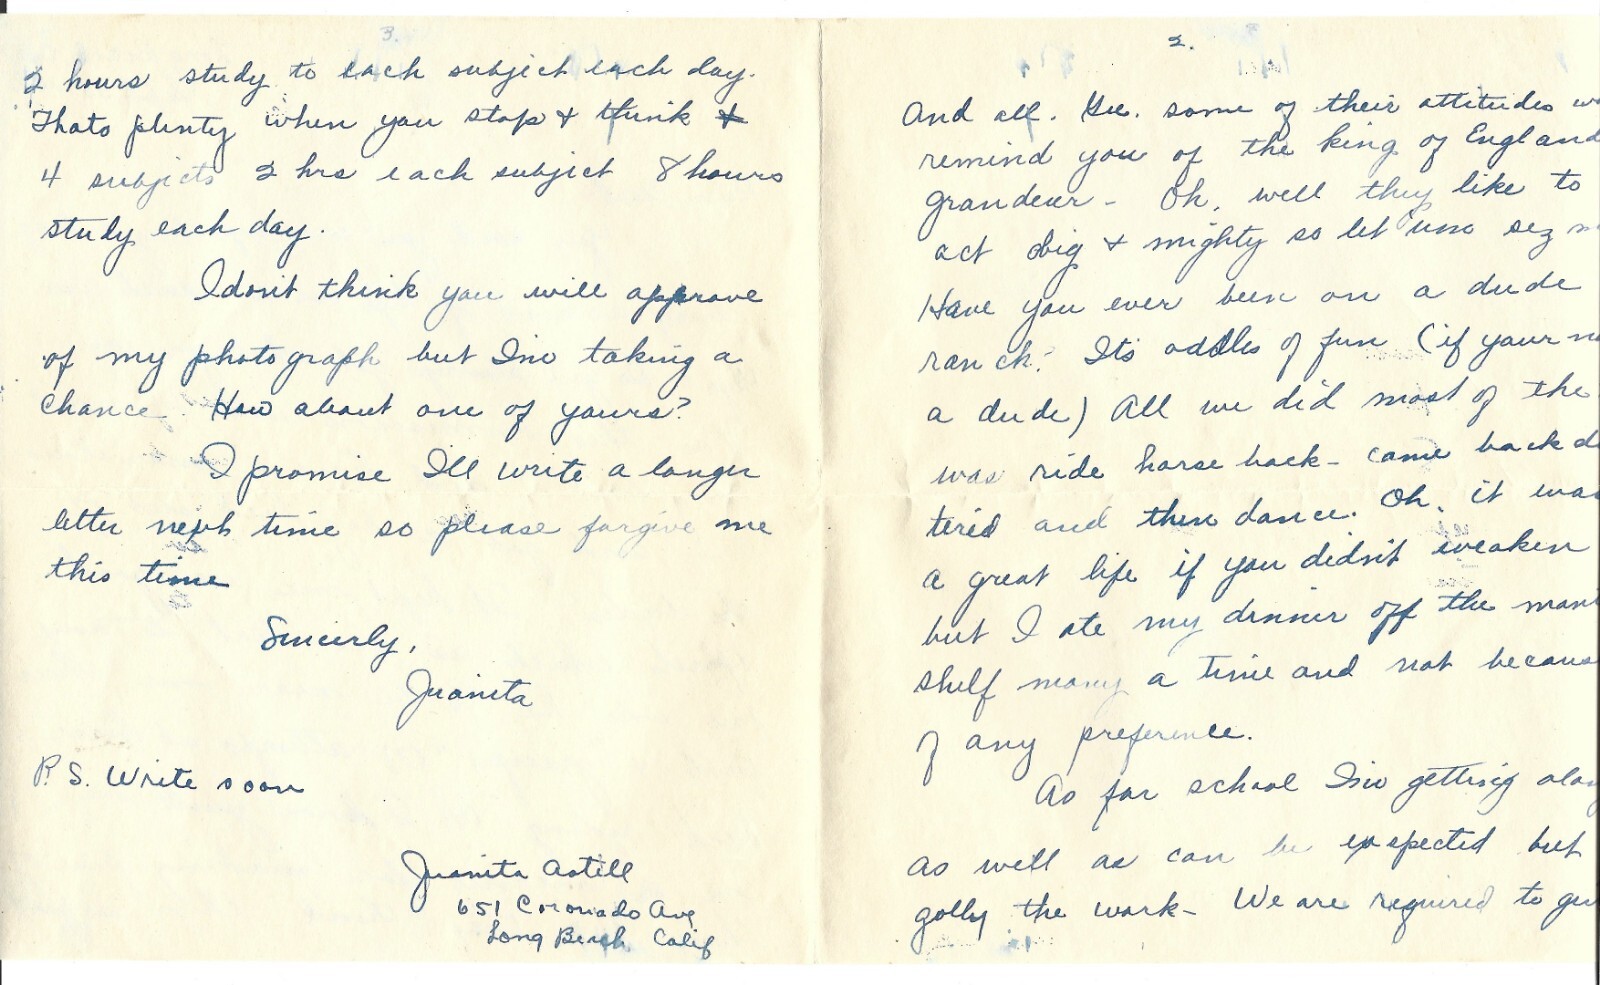 2.
And all. Gee. some of their attitudes
remind you of the king of England
grandeur - Oh, well they like to
act big & mighty so let 'um sez
Have you ever been on a dude
ranch? Its oddles of fun (if your
a dude) All we did most of the
was ride horse back - came back
tired and then dance. Oh, it was
a great life if you didn't weaken
but I ate my dinner off the
shelf many a time and not
of any preference.
As for school I'm getting
as well as can be expected but
golly the work - We are required to
3.
2 hours study to each subject each day.
Thats plenty when you stop & think
4 subjects 2 hrs each subject 8 hours
study each day.
I don't think you will approve
of my photograph but I'm taking a
chance. How about one of yours?
I promise I'll write a longer
letter next time so please forgive me
this time
Sincerly,
Juanita
P.S. Write soon
Juanita Astill
651 Coronado Ave
Long Beach Calif